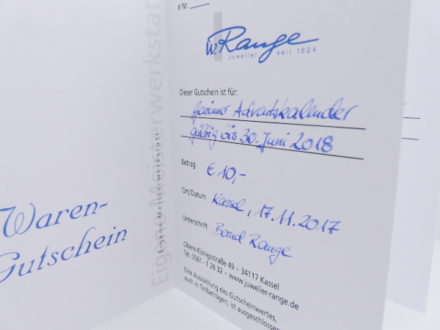 Waren-
Gutschein
Eigene Meisterwerkstatt
Eigene Meisterwerkstatt
Nr.
W. Range
juwelier seit 1824
Dieser Gutschein ist für:
Gewinner Adventskalender
gültig bis 30. Juni 2018
Betrag
€ 10,-
Ort/Datum
Kassel, 17.11.2017
Unterschrift
Bernd Range
Obere Königsstraße 49 · 34117 Kassel
Tel. 0561 - 1 28 32 · www.juwelier-range.de
Eine Auszahlung des Gutscheinwertes,
auch in Teilbeträgen, ist ausgeschlossen.